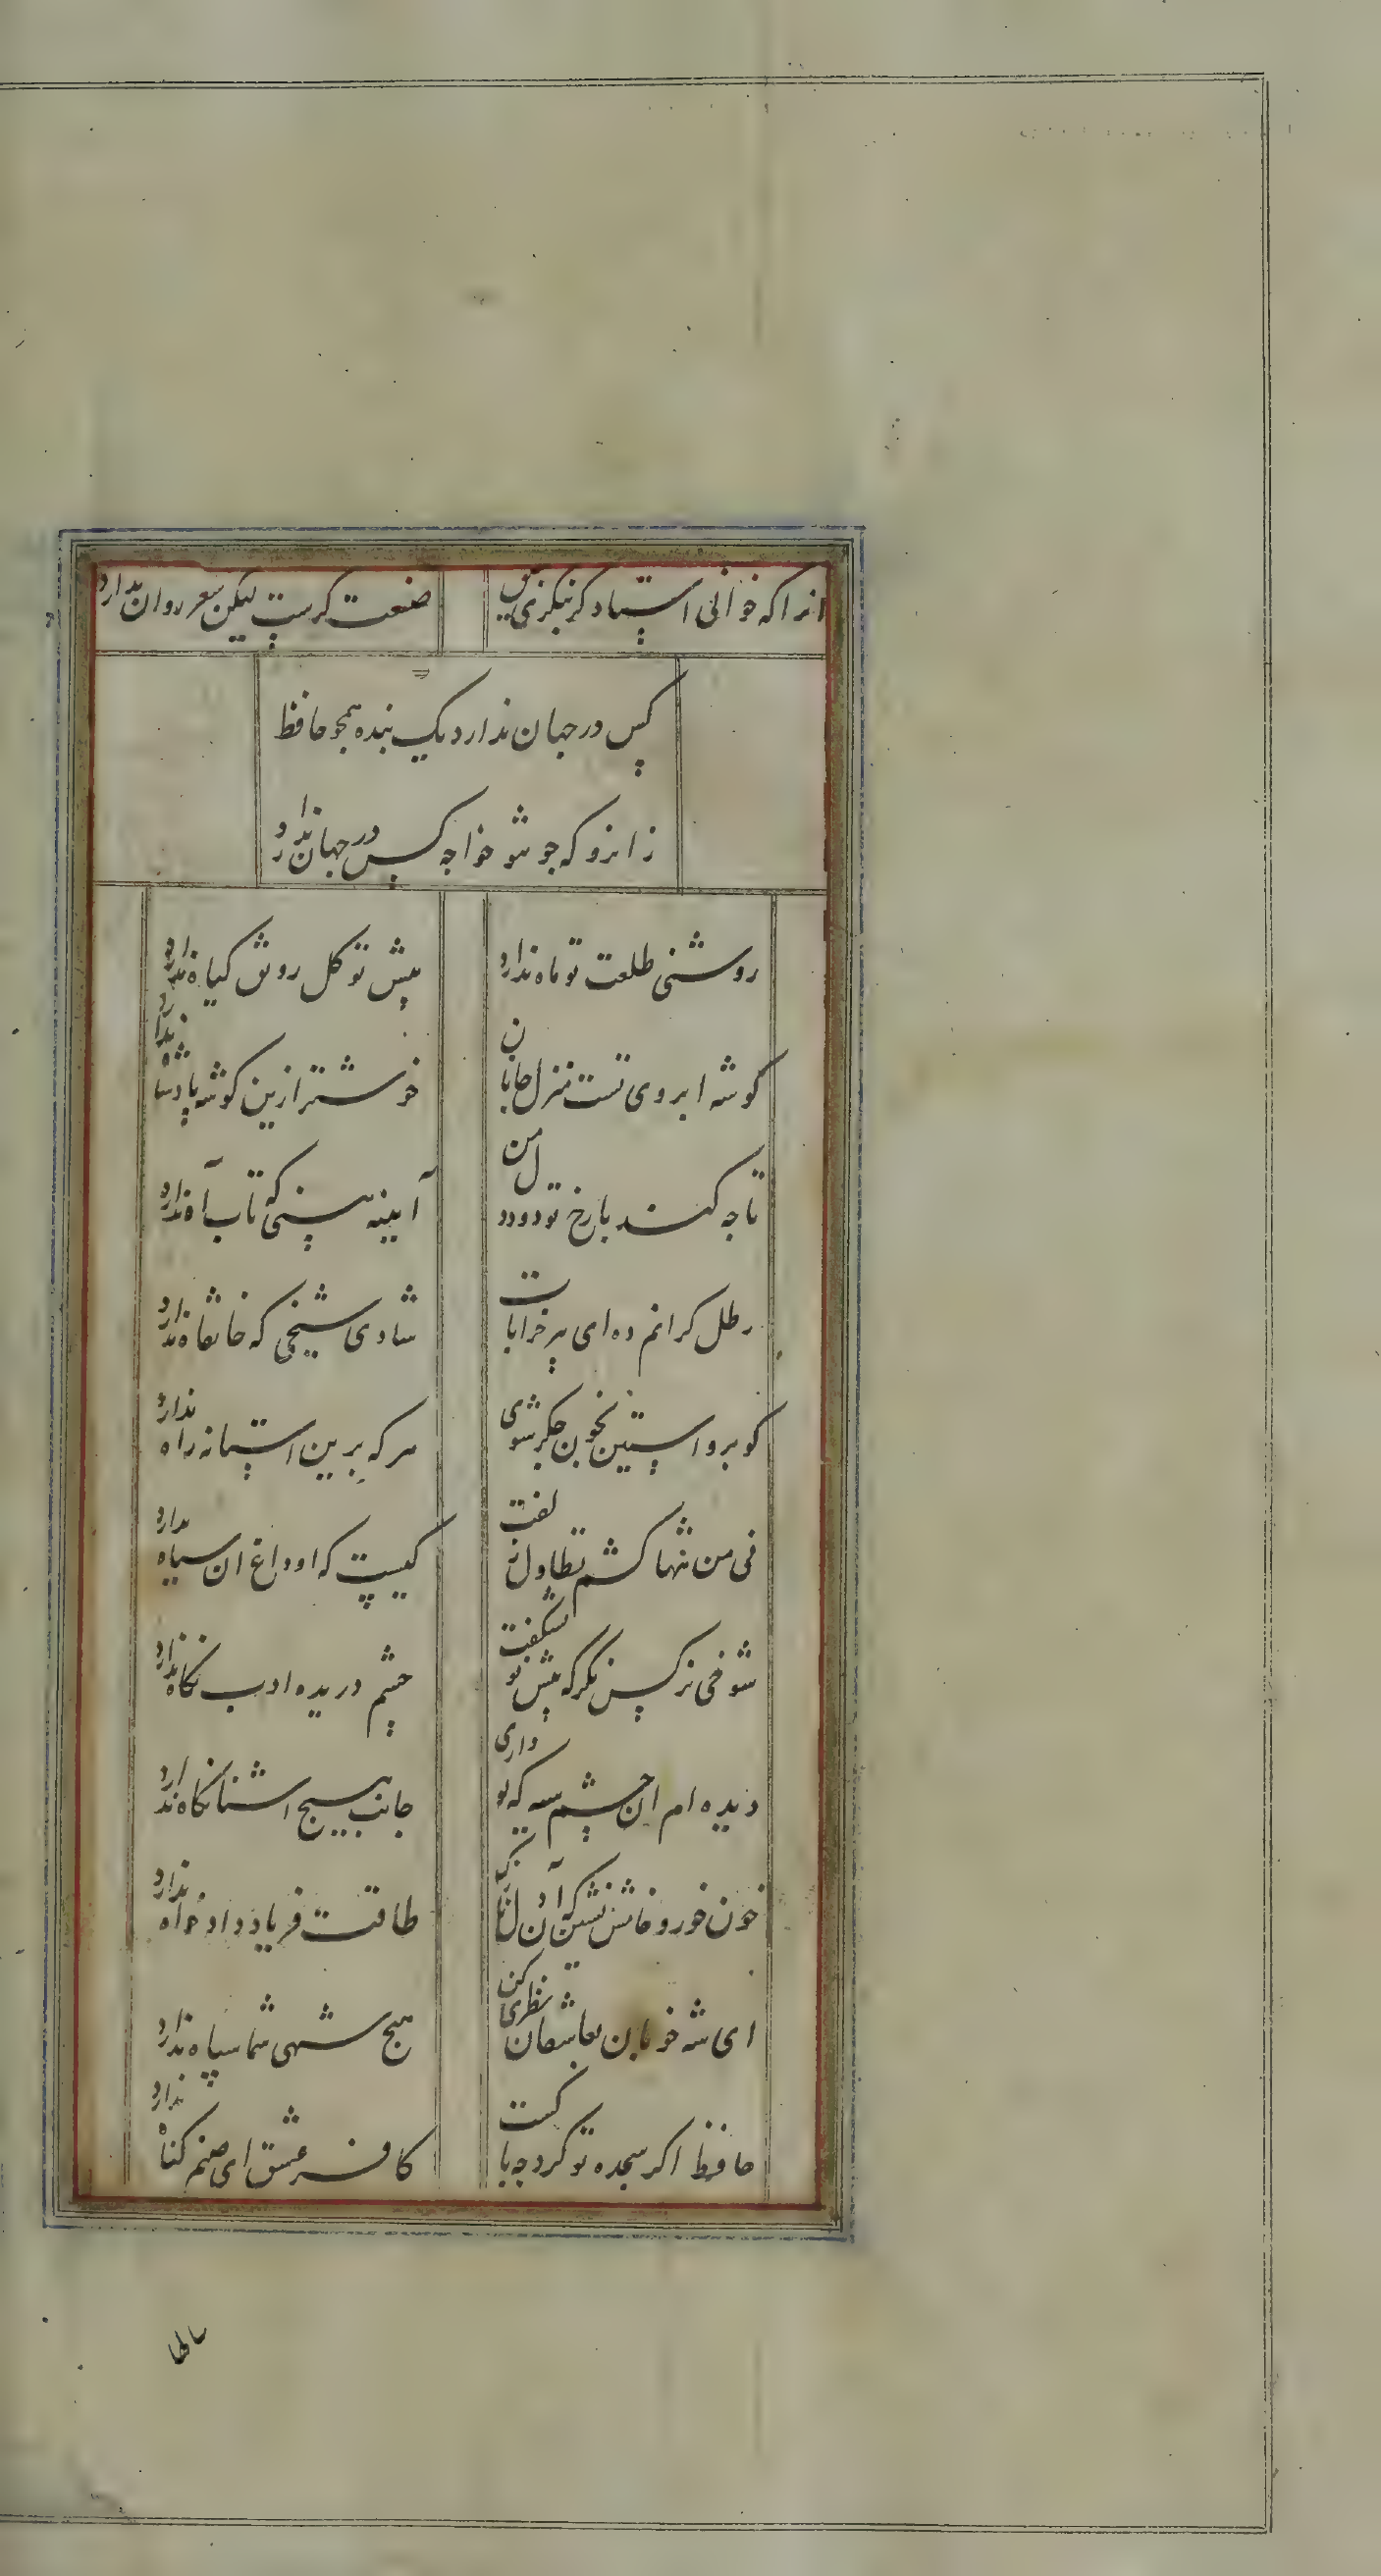 انرا که خوانی استاد کر بنکری بتحقیق
صنعت کرست لیکن شعر روان ندارد
کس در جهان ندارد یک بنده همچو حافظ
زانرو که جو تو شو خواجه کس در جهان ندارد
روشنی طلعت تو ماه ندارد
پیش تو کل رونق کیاه ندارد
کوشه ابروی تست منزل جانان
خوشتر ازین کوشه پادشاه ندارد
تا جه کند با رخ تو دود دل من
آیینه بینی که تاب آه ندارد
رطل کرانم ده ای پیر خرابات
شادی شیخی که خانقاه ندارد
کو برو استین بخون جکر شوی
هر که برین استانه راه ندارد
نی من تنها کشم تطاول زلفت
کیست که او داغ ان سیاه ندارد
شوخی نرکس نکر که پیش تو شکفت
چشم دریده ادب نکاه ندارد
دیده ام ان چشم سیه که تو داری
جانب هیچ اشنا نکاه ندارد
خون خور و خامش نشین که آن دل نازک
طاقت فریاد داد خواه ندارد
ای شه خوبان بعاشقان نظری کن
هیچ شهی شما سپاه ندارد
حافظ اکر سجده تو کرد جه باکست
کافر عشق ای صنم کناه ندارد
سالها